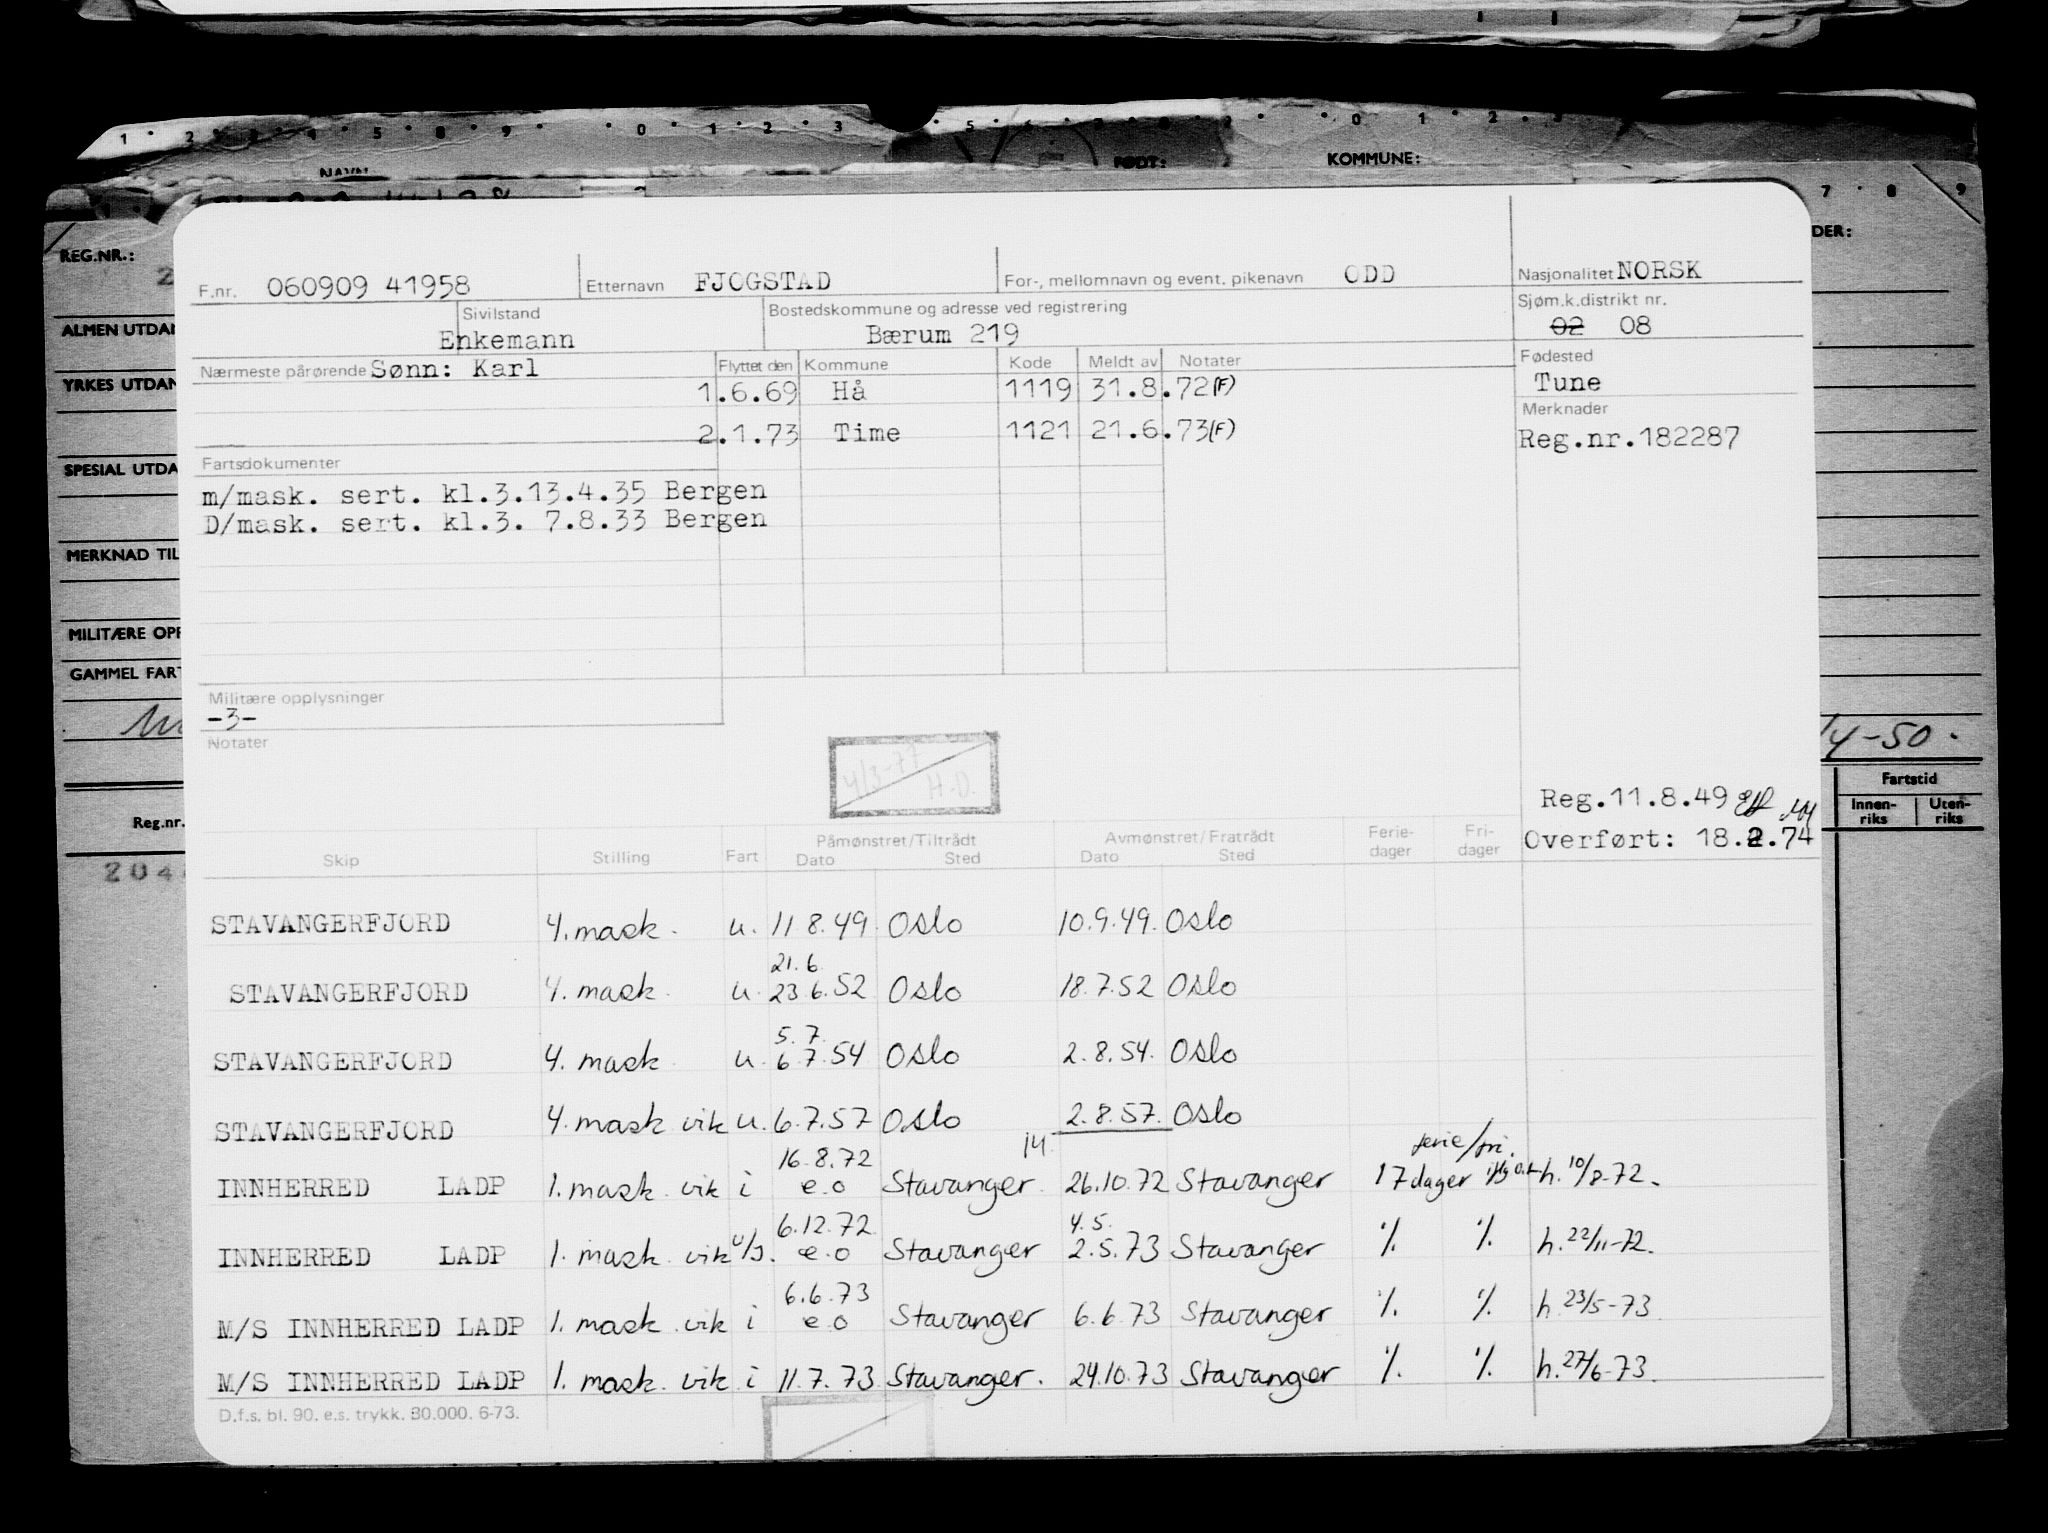 1 2 3 4 5 8 9 0 1 2 3 5 6 7 8 0 1 2 3
NAVN FØDT: KOMMUNE:
7 8 9
REG.NR.:
DER:
2
F.nr. 060909 41958 Etternavn FJOGSTAD For-, mellomnavn og event. pikenavn ODD Nasjonalitet NORSK
ALMEN UTDAN
Sivilstand Bostedskommune og adresse ved registrering Sjøm.k.distrikt nr.
Enkemann Bærum 219 02 08
YRKES UTDAN
Nærmeste pårørende Sønn: Karl Flyttet den Kommune Kode Meldt av Notater Fødested
1.6.69 Hå 1119 31.8.72(F) Tune
Merknader
2.1.73 Time 1121 21.6.73(F) Reg.nr.182287
SPESIAL UTDA
Fartsdokumenter
m/mask. sert. kl.3.13.4.35 Bergen
D/mask. sert. kl.3. 7.8.33 Bergen
MERKNAD TIL
MILITÆRE OPP
GAMMEL FART
Militære opplysninger
-3-
Notater
4/3-77
H.O.
/4-50.
Fartstid
Innen-riks Uten-riks
Reg.nr.
204
Reg.11.8.49
Overført: 18.2.74
Skip Stilling Fart Påmønstret/Tiltrådt Avmønstret/Fratrådt Ferie-dager Fri-dager
Dato Sted Dato Sted
STAVANGERFJORD 4. mask. u. 11 8.49 Oslo 10.9.49. Oslo
21.6
STAVANGERFJORD 4. mask. u. 23 6.52 Oslo 18.7.52 Oslo
5.7.
STAVANGERFJORD 4. mask u. 6 7.54 Oslo 2.8.54. Oslo
STAVANGERFJORD 4. mask vik u. 6.7.57 Oslo 2.8.57. Oslo
16.8.72 14. ferie/fri.
INNHERRED LADP 1. mask. vik i e.o Stavanger. 26.10.72 Stavanger 17 dager h. 10/8-72.
6.12.72 4.5.
INNHERRED LADP 1. mask. vik u/I. e.o Stavanger 2.5.73 Stavanger % % h. 22/11-72.
6.6.73
M/S INNHERRED LADP 1. mask. vik i e.o Stavanger 6.6.73 Stavanger % % h. 23/5-73.
M/S INNHERRED LADP 1. mask. vik i 11.7.73 Stavanger. 24.10.73 Stavanger % % h. 27/6-73.
D.f.s. bl. 90. e.s. trykk. 30.000. 6-73.